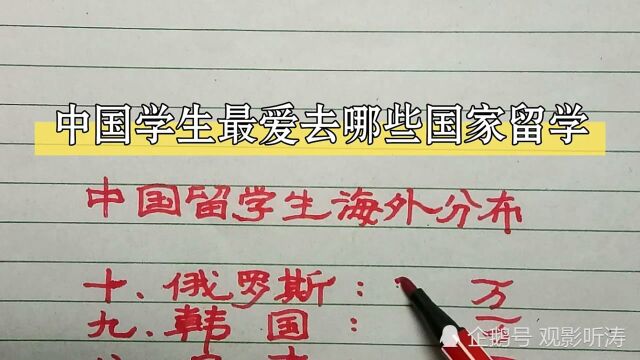 中国学生最爱去哪些国家留学
中国留学生海外分布
十、俄罗斯： 万
九、韩国：
企鹅号 观影听涛